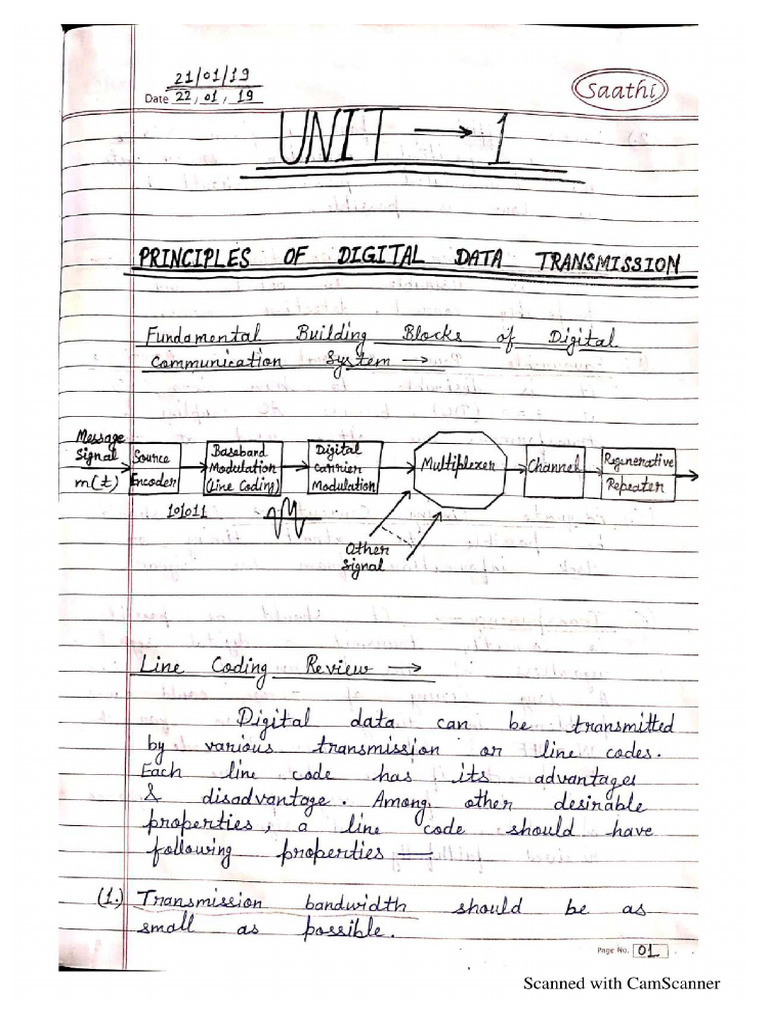 21/01/19
Date 22, 01, 19
Saathi
UNIT → 1
PRINCIPLES OF DIGITAL DATA TRANSMISSION
Fundamental Building Blocks of Digital
Communication System →
Message
Signal
m(t)
Source
Encoder
Baseband
Modulation
(Line Coding)
Digital
Carrier
Modulation
Multiplexer
Channel
Regenerative
Repeater
101011
Other
Signal
Line Coding Review →
Digital data can be transmitted
by various transmission or line codes.
Each line code has its advantages
& disadvantage. Among other desirable
properties, a line code should have
following properties —
(1.) Transmission bandwidth should be as
small as possible.
Page No. 01
Scanned with CamScanner